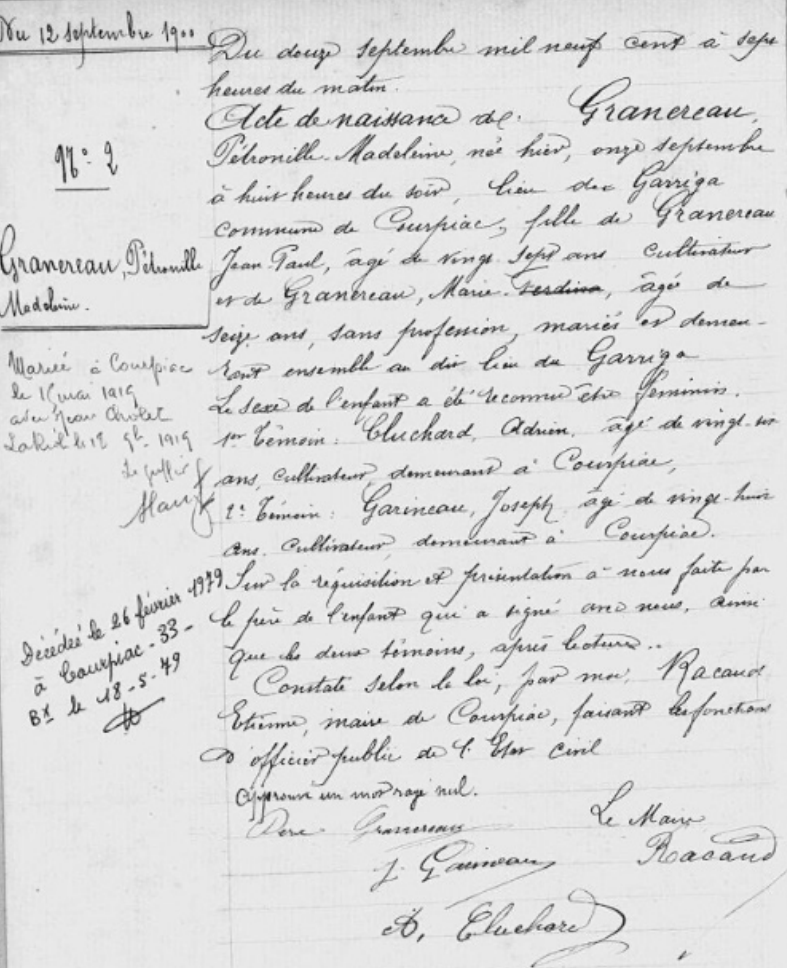 Du 12 septembre 1900
N° 2
Granereau, Pétronille
Madeleine.
Mariée à Courpiac
le 1 mai 1919
avec Jean Cholet
le 12 9b 1919
Le greffier
Décédée le 26 février 1979
à Courpiac - 33 -
Bx le 18-5-79
Du douze septembre mil neuf cent à sept
heures du matin.
Acte de naissance de Granereau,
Pétronille-Madeleine, née hier, onze septembre
à huit heures du soir, lieu de Garriga
commune de Courpiac, fille de Granereau
Jean Paul, âgé de vingt sept ans cultivateur
et de Granereau, Marie, âgée de
seize ans, sans profession, mariés et demeu-
rant ensemble au dit lieu du Garriga
Le sexe de l'enfant a été reconnu être féminin.
1er Témoin: Cluchard, Adrien, âgé de vingt-six
ans, cultivateur, demeurant à Courpiac,
2e Témoin: Garineau, Joseph, âgé de vingt-huit
ans, cultivateur, demeurant à Courpiac.
Sur la réquisition et présentation à nous faite par
le père de l'enfant qui a signé avec nous, ainsi
que les deux témoins, après lecture..
Constaté selon la loi, par moi, Racaud
Etienne, maire de Courpiac, faisant les fonctions
d'officier public de l'Etat civil
Approuvé un mot rayé nul.
Granereau Le Maire
J. Garineau Racaud
A, Cluchard